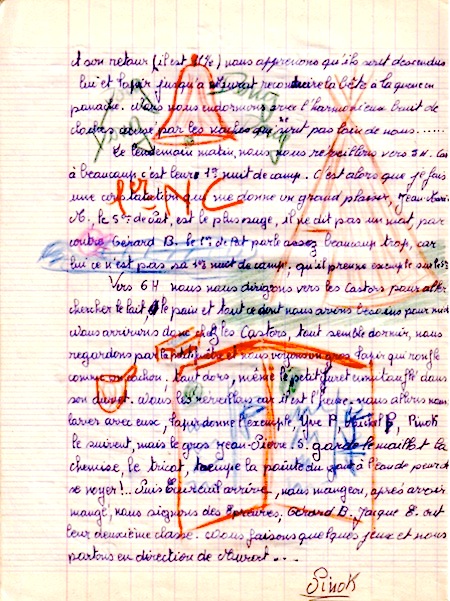 A son retour (il est 11h) nous apprenons qu'ils sont descendus
lui et Tapir jusqu'à Murat reconduire la bête à la queue en
panache. Nous nous endormons avec l'harmonieux bruit de
cloches causé par les vaches qui ne sont pas loin de nous......
Le lendemain matin, nous nous reveillons vers 5H. Car
à beaucoup c'est leurs 1re nuit de camp. C'est alors que je fais
une constatation qui me donne un grand plaisir, Jean-Marie
M., le 5e de Pat, est le plus sage, il ne dit pas un mot, par
contre Gérard B. le 1er de Pat parle assez beaucoup trop, car
lui ce n'est pas sa 1re nuit de camp, qu'il prenne exemple sur le 5e
Vers 6H nous nous dirigeons vers les Castors pour aller
chercher le lait, le pain et tout ce dont nous avions besoins pour midi
Nous arrivons donc chez les Castors, tout semble dormir, nous
regardons par la portière et nous voyons un gros tapir qui ronfle
comme un cochon. Tout dors, même le petit furet emmitouflé dans
son duvet. Nous les reveillons car il est l'heure. Nous allons nous
laver avec eux, tapir donne l'exemple, Yve P, P, Pinok
le suivent, mais le gros Jean-Pierre S. garde le maillot la
chemise, le tricot, trempe la pointe du gant à l'eau de peur de
se noyer!.. Puis Ecureuil arrive, nous mangeon, après avoir
mangé, nous signons des épreuves, Gérard B, Jacque E. ont
leur deuxième classe. Nous faisons quelques jeux et nous
partons en direction de Murat....
Pinok
NC